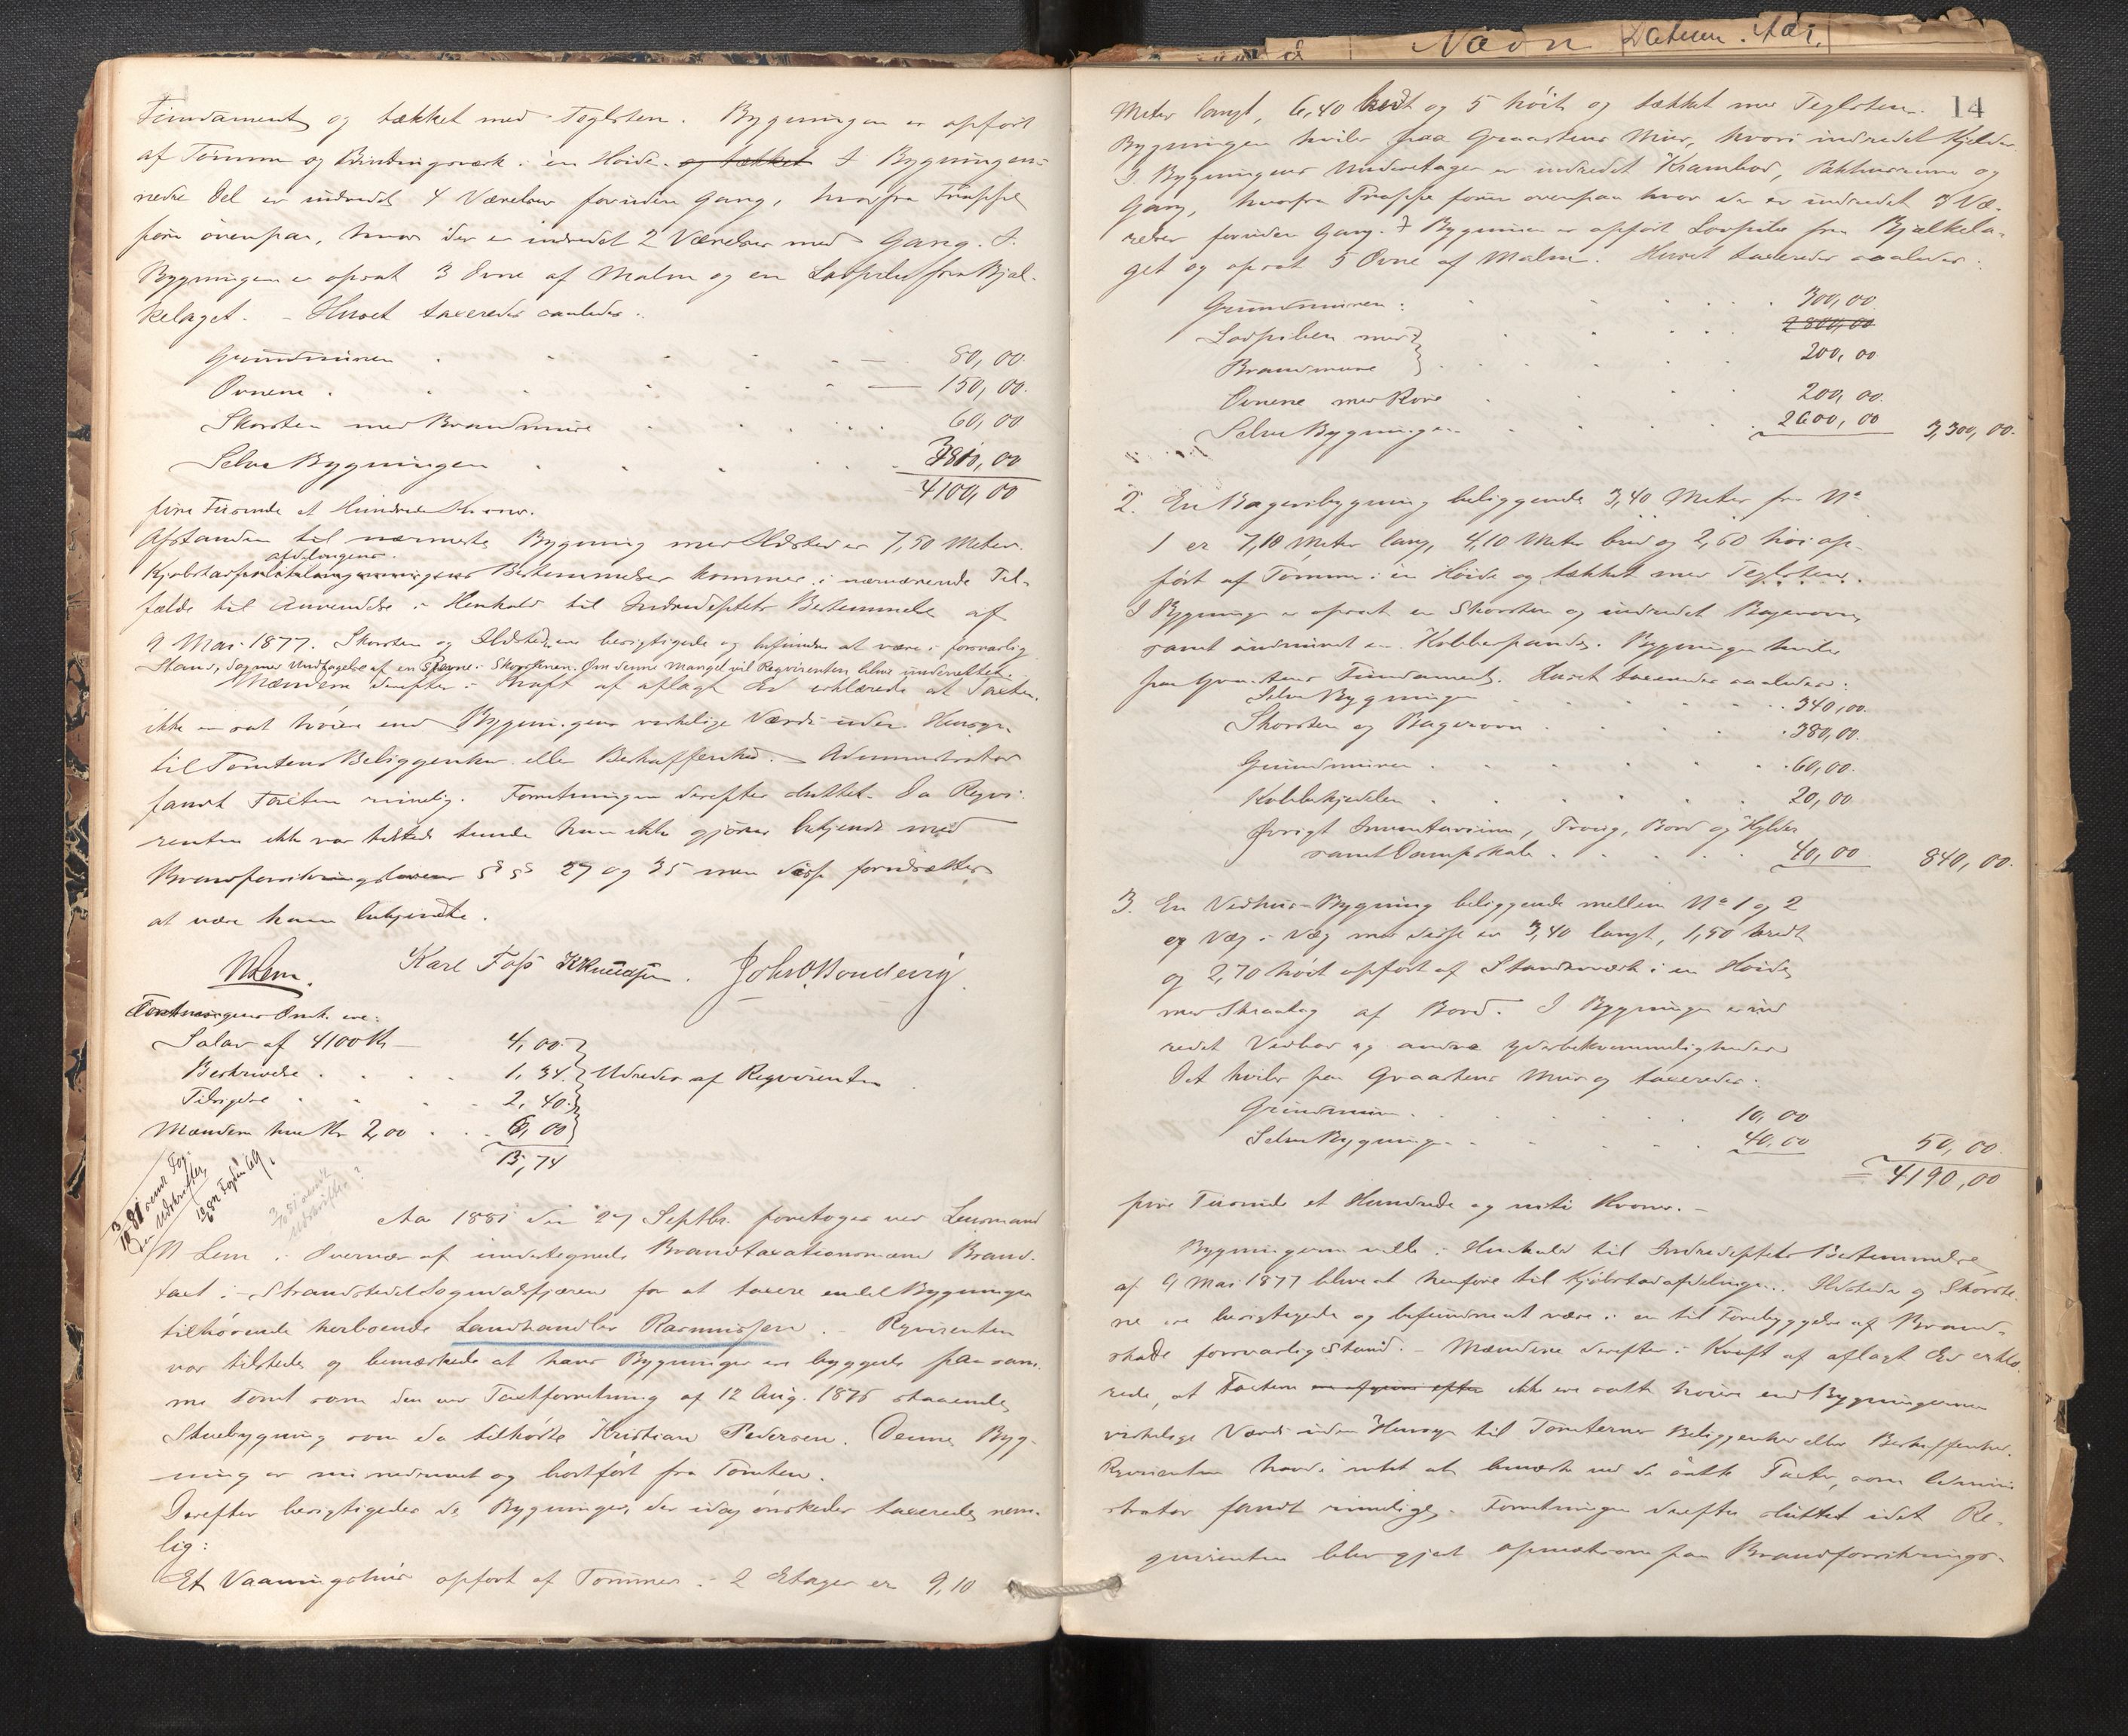 Fundament og tækket med Teglsten. Bygningen er opfört
af Tömmer og Bindingsværk i en Höide. og tækket I Bygningens
nedre Del er indredet 4 Værelser foruden Gang, hvorfra Trappe
förer ovenpaa, hvor der er indredet 2 Værelser med Gang. I
Bygningen er opsat 3 Ovne af Malm og en Lodpibe fra Bjel-
kelaget. - Huset taxeredes saaledes:
Grundmuren 80,00.
Ovnene 150,00.
Skorsten med Brandmure 60,00
Selve Bygningen 3810,00
4100,00
fire Tusinde et Hundrede Kroner.
Afstanden til nærmeste Bygning med Ildsted er 7,50 Meter.
afdelingens
Kjöbstad Bestemmelser kommer i nærværende Til-
fælde til Anvendelse i Henhold til Indredeptets Bestemmelse af
9 Mai 1877. Skorsten og Ildsteder ere besigtigede og befundne at være i forsvarlig
Stand, dog med Undtagelse af en i Skorstenen. Om denne Mangel vil Reqvirenten blive underrettet.
Mændene derefter i Kraft af aflagt Ed erklærede at Taxten
ikke er sat höiere end Bygningens virkelige Værdi uden Hensyn
til Tomtens Beliggenhed eller Beskaffenhed. Administrator
fandt Taxten rimelig. Forretningen derefter sluttet. Da Reqvi-
renten ikke var tilstede kunde han ikke gjöres bekjendt med
Brandforsikringslovens §§ 27 og 35 men disse forudsættes
at være ham bekjendte.
N Lem. Karl Foss K Knudsen. John Bondevig.
Forretningens Omk. ere:
Salar af 4100 Kr 4,00
Beskrivelse 1,34 Udredes af Reqvirenten
Tilsigelse 2,40
Mændene hver Kr 2,00 6,00
13,74
Aar 1881 den 27 Septbr. foretoges ved Lensmand
N Lem i Overvær af undertegnede Brandtaxationsmænd Brand-
taxt i Strandstedet Sogndalsfjæren for at taxere endel Bygninger
tilhörende herboende Landhandler Rasmussen. - Reqvirenten
var tilstede og bemærkede at hans Bygninger ere byggede paa sam-
me Tomt som den ved Taxtforretning af 12 Aug. 1875 staaende
Stuebygning som da tilhörte Kristian Pedersen. Denne Byg-
ning er nu nedrevet og bortfört fra Tomten.
Derefter besigtigedes de Bygninger, der idag önskedes taxerede, nem-
lig:
Et Vaaningshus opfört af Tömmer i 2 Etager er 9,10
Navn Datum. Aar.
14
Meter langt, 6,40 bredt og 5 höit og tækket med Teglsten.
Bygningen hviler paa Graastens Mur, hvori indredet Kjelder.
I Bygningens Underetage er indredet Krambod, Pakhusrum og
Gang, hvorfra Trappe förer ovenpaa hvor der er indredet 3 Væ-
relser foruden Gang. I Bygningen er opfört Lodpibe fra Bjælkela-
get og opsat 5 Ovne af Malm. Huset taxeredes saaledes:
Grundmuren: 300,00
2800,00
Lodpiben med
Brandmure 200,00
Ovnene med Rör 200,00
Selve Bygningen 2600,00 3,300,00.
2. En Bageribygning beliggende 3,40 Meter fra No
1 er 7,10 Meter lang, 4,10 Meter bred og 2,60 höi op-
fört af Tömmer i en Höide og tækket med Teglsten.
I Bygningen er opsat en Skorsten og indredet Bagerovn,
samt indmuret en Kobberpande. Bygningen hviler
paa Graastens Fundament. Huset taxeredes saaledes:
Selve Bygningen 340,00.
Skorsten og Bagerovn 380,00.
Grundmuren 60,00.
Kobberkjedelen 20,00
Övrigt Inventarium, Troug, Bord og Hylder
samt Dampskab 40,00 840,00.
3. En Vedhus-Bygning beliggende mellem No 1 og 2
og Væg i Væg med disse er 3,40 langt, 1,50 bredt
og 2,70 höit opfört af Standværk i en Höide
med Skraatag af Bord. I Bygningen er ind
redet Vedbod og andre Yderbekvemmeligheder
Det hviler paa Graastens Mur og taxeredes:
Grundmuren 10,00
Selve Bygningen 40,00 50,00.
4190,00
fire Tusinde et Hundrede og niti Kroner. -
Bygningerne ville i Henhold til Indredeptets Bestemmelse
af 9 Mai 1877 blive at henföre til Kjöbstadafdelingen. Ildsteder og Skorste-
ne ere besigtigede og befundne at være i en til Forebyggelse af Brand-
skade forsvarlig Stand. - Mændene derefter i Kraft af aflagt Ed erklæ-
rede, at Taxterne ikke ere satte höiere end Bygningernes
virkelige Værdi uden Hensyn til Tomternes Beliggenhed eller Beskaffenhed.
Reqvirenten havde intet at bemærke ved de satte Taxter, som Admini
strator fandt rimelige. Forretningen derefter sluttet idet Re-
qvirenten blev gjort opmærksom paa Brandforsikrings-